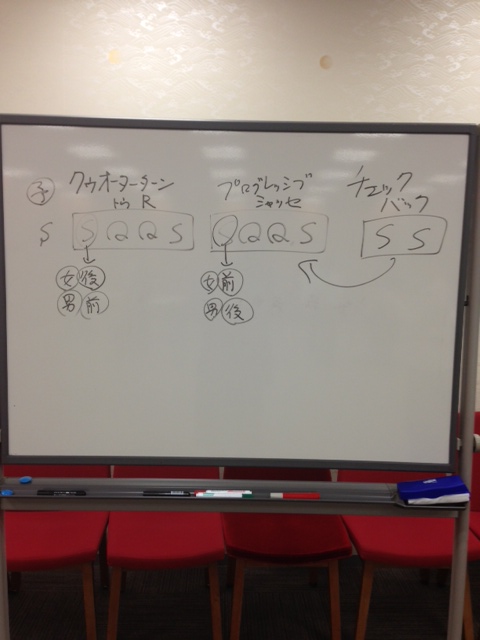 クウオーターターン
トゥ R
S S Q Q S
女 後
男 前
プログレッシブ
シャッセ
S Q Q S
女 前
男 後
チェック
バック
S S